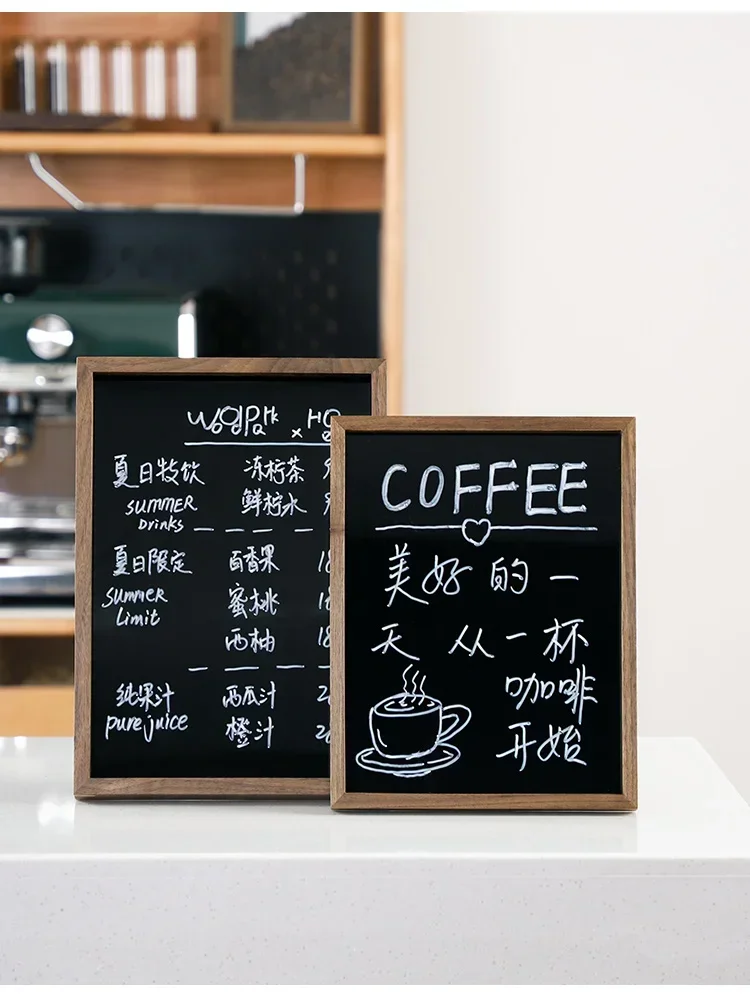 夏日特饮 冻柠茶
SUMMER 鲜柠水
Drinks
夏日限定 百香果 18
Summer 蜜桃 18
Limit 西柚 18
纯果汁 西瓜汁
pure juice 橙汁
COFFEE
美好的一
天 从一杯
咖啡
开始